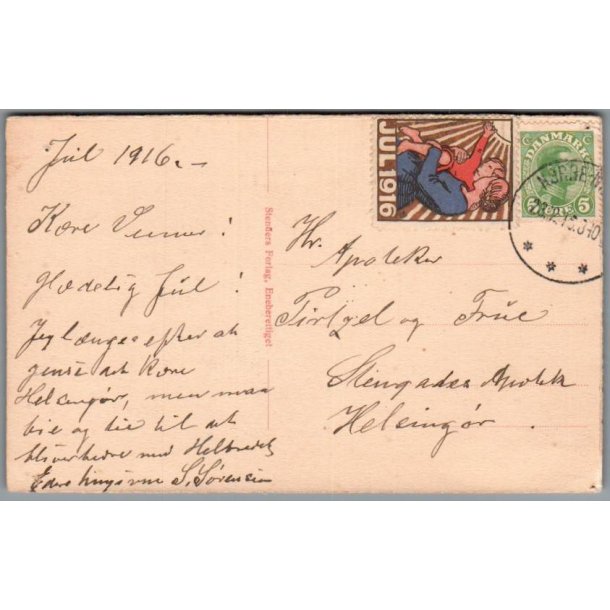 Jul 1916.-
Kære Venner!
Glædelig Jul!
Jeg længes efter at
gense det kære
Helsingør, men maa
bie og tie til det
bliver bedre med Helbredet
Eders hengivne S. Sørensen
Stenders Forlag, Eneberettiget
JUL 1916
DANMARK
5 5
Hr. Apoteker
og Frue
Stengades Apotek
Helsingør.